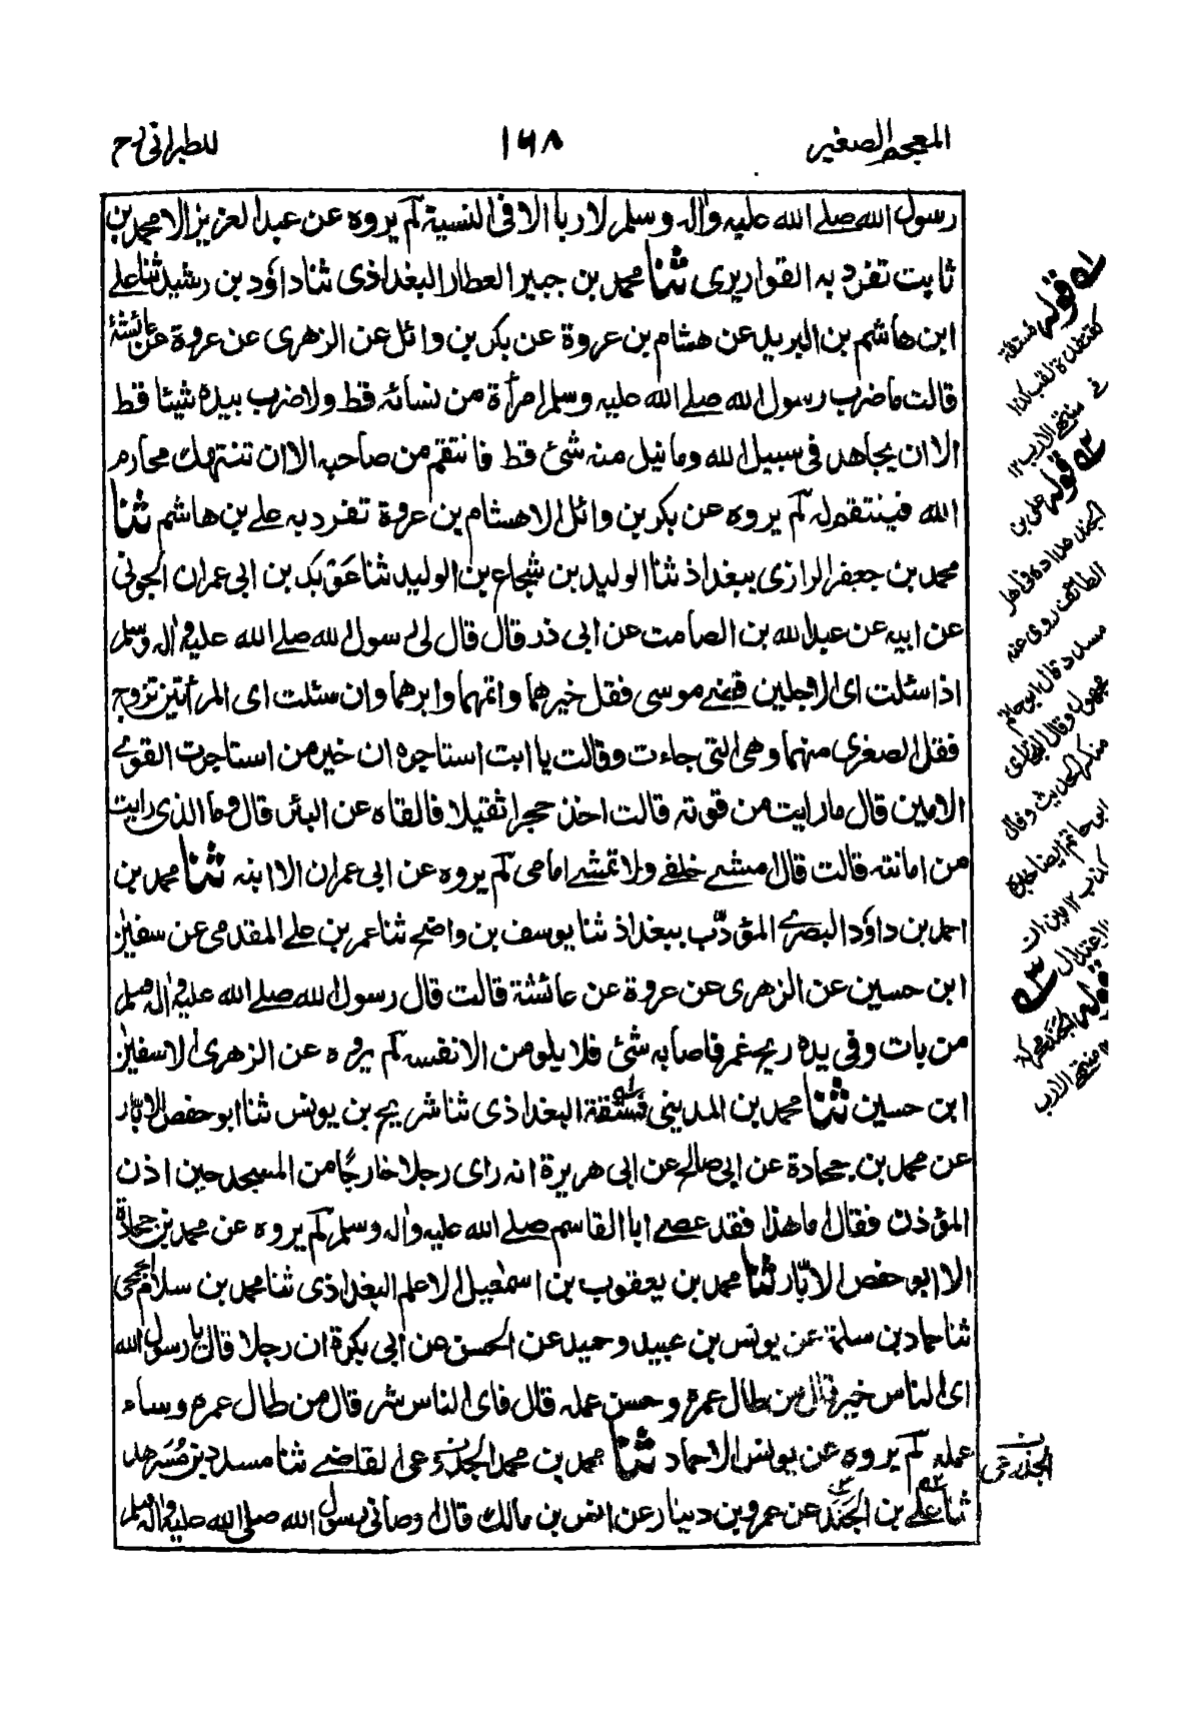 المعجم الصغير
١٦٨
للطبرانی رح
رسول الله صلے الله علیه واٰله وسلم لا ربا الا فی النسیة لم یروه عن عبد العزیز الا محمد بن
ثابت تفرد به القواریری ثنا محمد بن جبیر العطار البغداذی ثنا داؤد بن رشید ثنا علے
ابن هاشم بن البرید عن هشام بن عروة عن بکر بن وائل عن الزهری عن عروة عن عائشة
قالت ما ضرب رسول الله صلے الله علیه وسلم امرأة من نسائه قط ولا ضرب بیده شیئا قط
الا ان یجاهد فی سبیل الله وما نیل منه شئ قط فانتقم من صاحبه الا ان تنتهك محارم
الله فینتقم له لم یروه عن بکر بن وائل الا هشام بن عروة تفرد به علے بن هاشم ثنا
محمد بن جعفر الرازی ببغداذ ثنا الولید بن شجاع بن الولید ثنا عوبد بن ابی عمران الجونی
عن ابیه عن عبد الله بن الصامت عن ابی ذر قال قال لی رسول الله صلے الله علیه واٰله وسلم
اذا سئلت ای الاجلین قضے موسی فقل خیرهما واتمهما وابرهما وان سئلت ای المرأتین تزوج
فقل الصغری منهما وهی التی جاءت وقالت یا ابت استاجره ان خیر من استاجرت القوی
الامین قال ما رایت من قوته قالت اخذ حجرا ثقیلا فالقاه عن البئر قال وما الذی رایت
من امانته قالت قال امشے خلفے ولا تمشے امامی لم یروه عن ابی عمران الا ابنه ثنا محمد بن
احمد بن داؤد البصرے المؤدّب ببغداذ ثنا یوسف بن واضح ثنا عمر بن علے المقدمی عن سفیٰن
ابن حسین عن الزهری عن عروة عن عائشة قالت قال رسول الله صلے الله علیه واٰله وسلم
من بات وفی یده ریح غمر فاصابه شئ فلا یلومن الا نفسه لم یروه عن الزهری الا سفیٰن
ابن حسین ثنا محمد بن المدینی فستقة البغداذی ثنا شریح بن یونس ثنا ابو حفص الابّار
عن محمد بن جحادة عن ابی صالح عن ابی هریرة انه رای رجلا خارجًا من المسجد حین اذن
المؤذن فقال اما هذا فقد عصے ابا القاسم صلے الله علیه واٰله وسلم لم یروه عن محمد بن جحادة
الا ابو حفص الابّار ثنا محمد بن یعقوب بن اسمٰعیل الاعلم البغداذی ثنا محمد بن سلام الجمحی
ثنا حماد بن سلمة عن یونس بن عبید وحمید عن الحسن عن ابی بکرة ان رجلا قال یا رسول الله
ای الناس خیر قال من طال عمره وحسن عمله قال فای الناس شر قال من طال عمره وساء
عمله لم یروه عن یونس الا حماد ثنا محمد بن محمد الجذوعی القاضے ثنا مسدد بن مسرهد
ثنا علے بن الجَنَد عن عمرو بن دینار عن انس بن مالك قال اوصانی رسول الله صلی الله علیه واٰله وسلم
له قوله فستقة
فی منتهے الارب ١٢
٢ قوله علی بن
الجند عداده فی اهل
الطائف روی عنه
مسدد قال ابو حاتم
مجهول وقال البخاری
منکر الحدیث وقال
ابی حاتم ایضا
کذب ١٢ میزان
الاعتدال ٣
قوله الجند محرکة
منتهے الارب